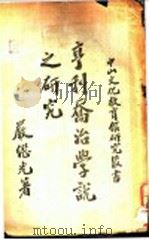 中山文化教育館研究叢書
亨利喬治學說
之研究
嚴継光著